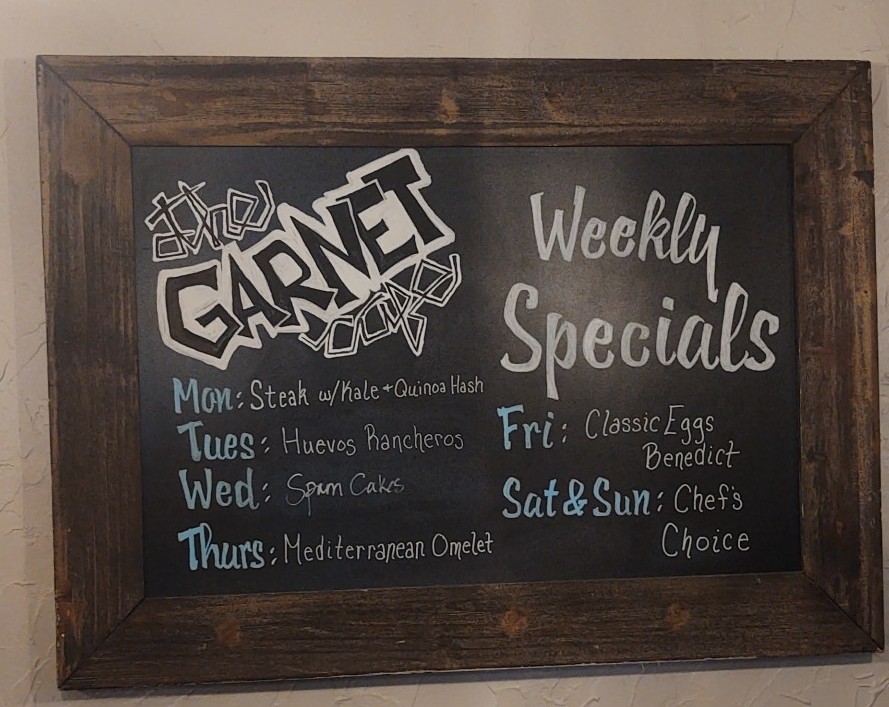 the
GARNET
cafe
Weekly
Specials
Mon: Steak w/Kale + Quinoa Hash
Tues: Huevos Rancheros
Wed: Spam Cakes
Thurs: Mediterranean Omelet
Fri: Classic Eggs
Benedict
Sat & Sun: Chef's
Choice